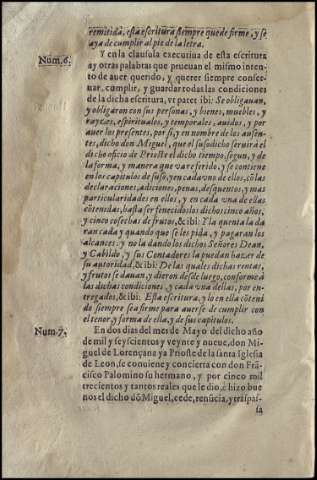 remitida, esta escritura siempre quede firme, y se
aya de cumplir al pie de la letra.
Num. 6. Y en la clausula executiua de esta escritura
ay otras palabras que prueuan el mismo intento
de auer querido, y querer siempre conseruar,
cumplir, y guardar todas las condiciones
de la dicha escritura, vt patet ibi: Se obligauan,
y obligaron con sus personas, y bienes, muebles, y
rayzes, espirituales, y temporales, auidos, y por
auer los presentes, por si, y en nombre de los ausentes,
dicho don Miguel, que el susodicho seruirà el
dicho oficio de Prioste el dicho tiempo, segun, y de
la forma, y manera que va referido, y se contiene
en los capitulos de suso, y en cada vno de ellos, cō las
declaraciones, adiciones, penas, desquentos, y mas
particularidades en ellos, y en cada vna de ellas
cōtenidas, hasta ser fenecidos los dichos cinco años,
y cinco cosechas de frutos, & ibi: Y la quenta la daran
cada y quando que se les pida, y pagaran los
alcances: y no la dando los dichos Señores Dean,
y Cabildo, y sus Contadores la puedan hazer de
su autoridad, & ibi: De las quales dichas rentas,
y frutos se dauan, y dieron desde luego, conforme à
las dichas condiciones, y cada vna dellas, por entregados,
& ibi: Esta escritura, y lo en ella cōtenido
siempre sea firme para auerse de cumplir con
el tenor, y forma de ella, y de sus capitulos.
Num. 7. En dos dias del mes de Mayo del dicho año
de mil y seyscientos y veynte y nueue, don Miguel
de Lorençana ya Prioste de la santa Iglesia
de Leon, se conuiene y concierta con don Frācisco
Palomino su hermano, y por cinco mil
trecientos y tantos reales que le dio, è hizo buenos
el dicho dō Miguel, cede, renūcia, y traspassa